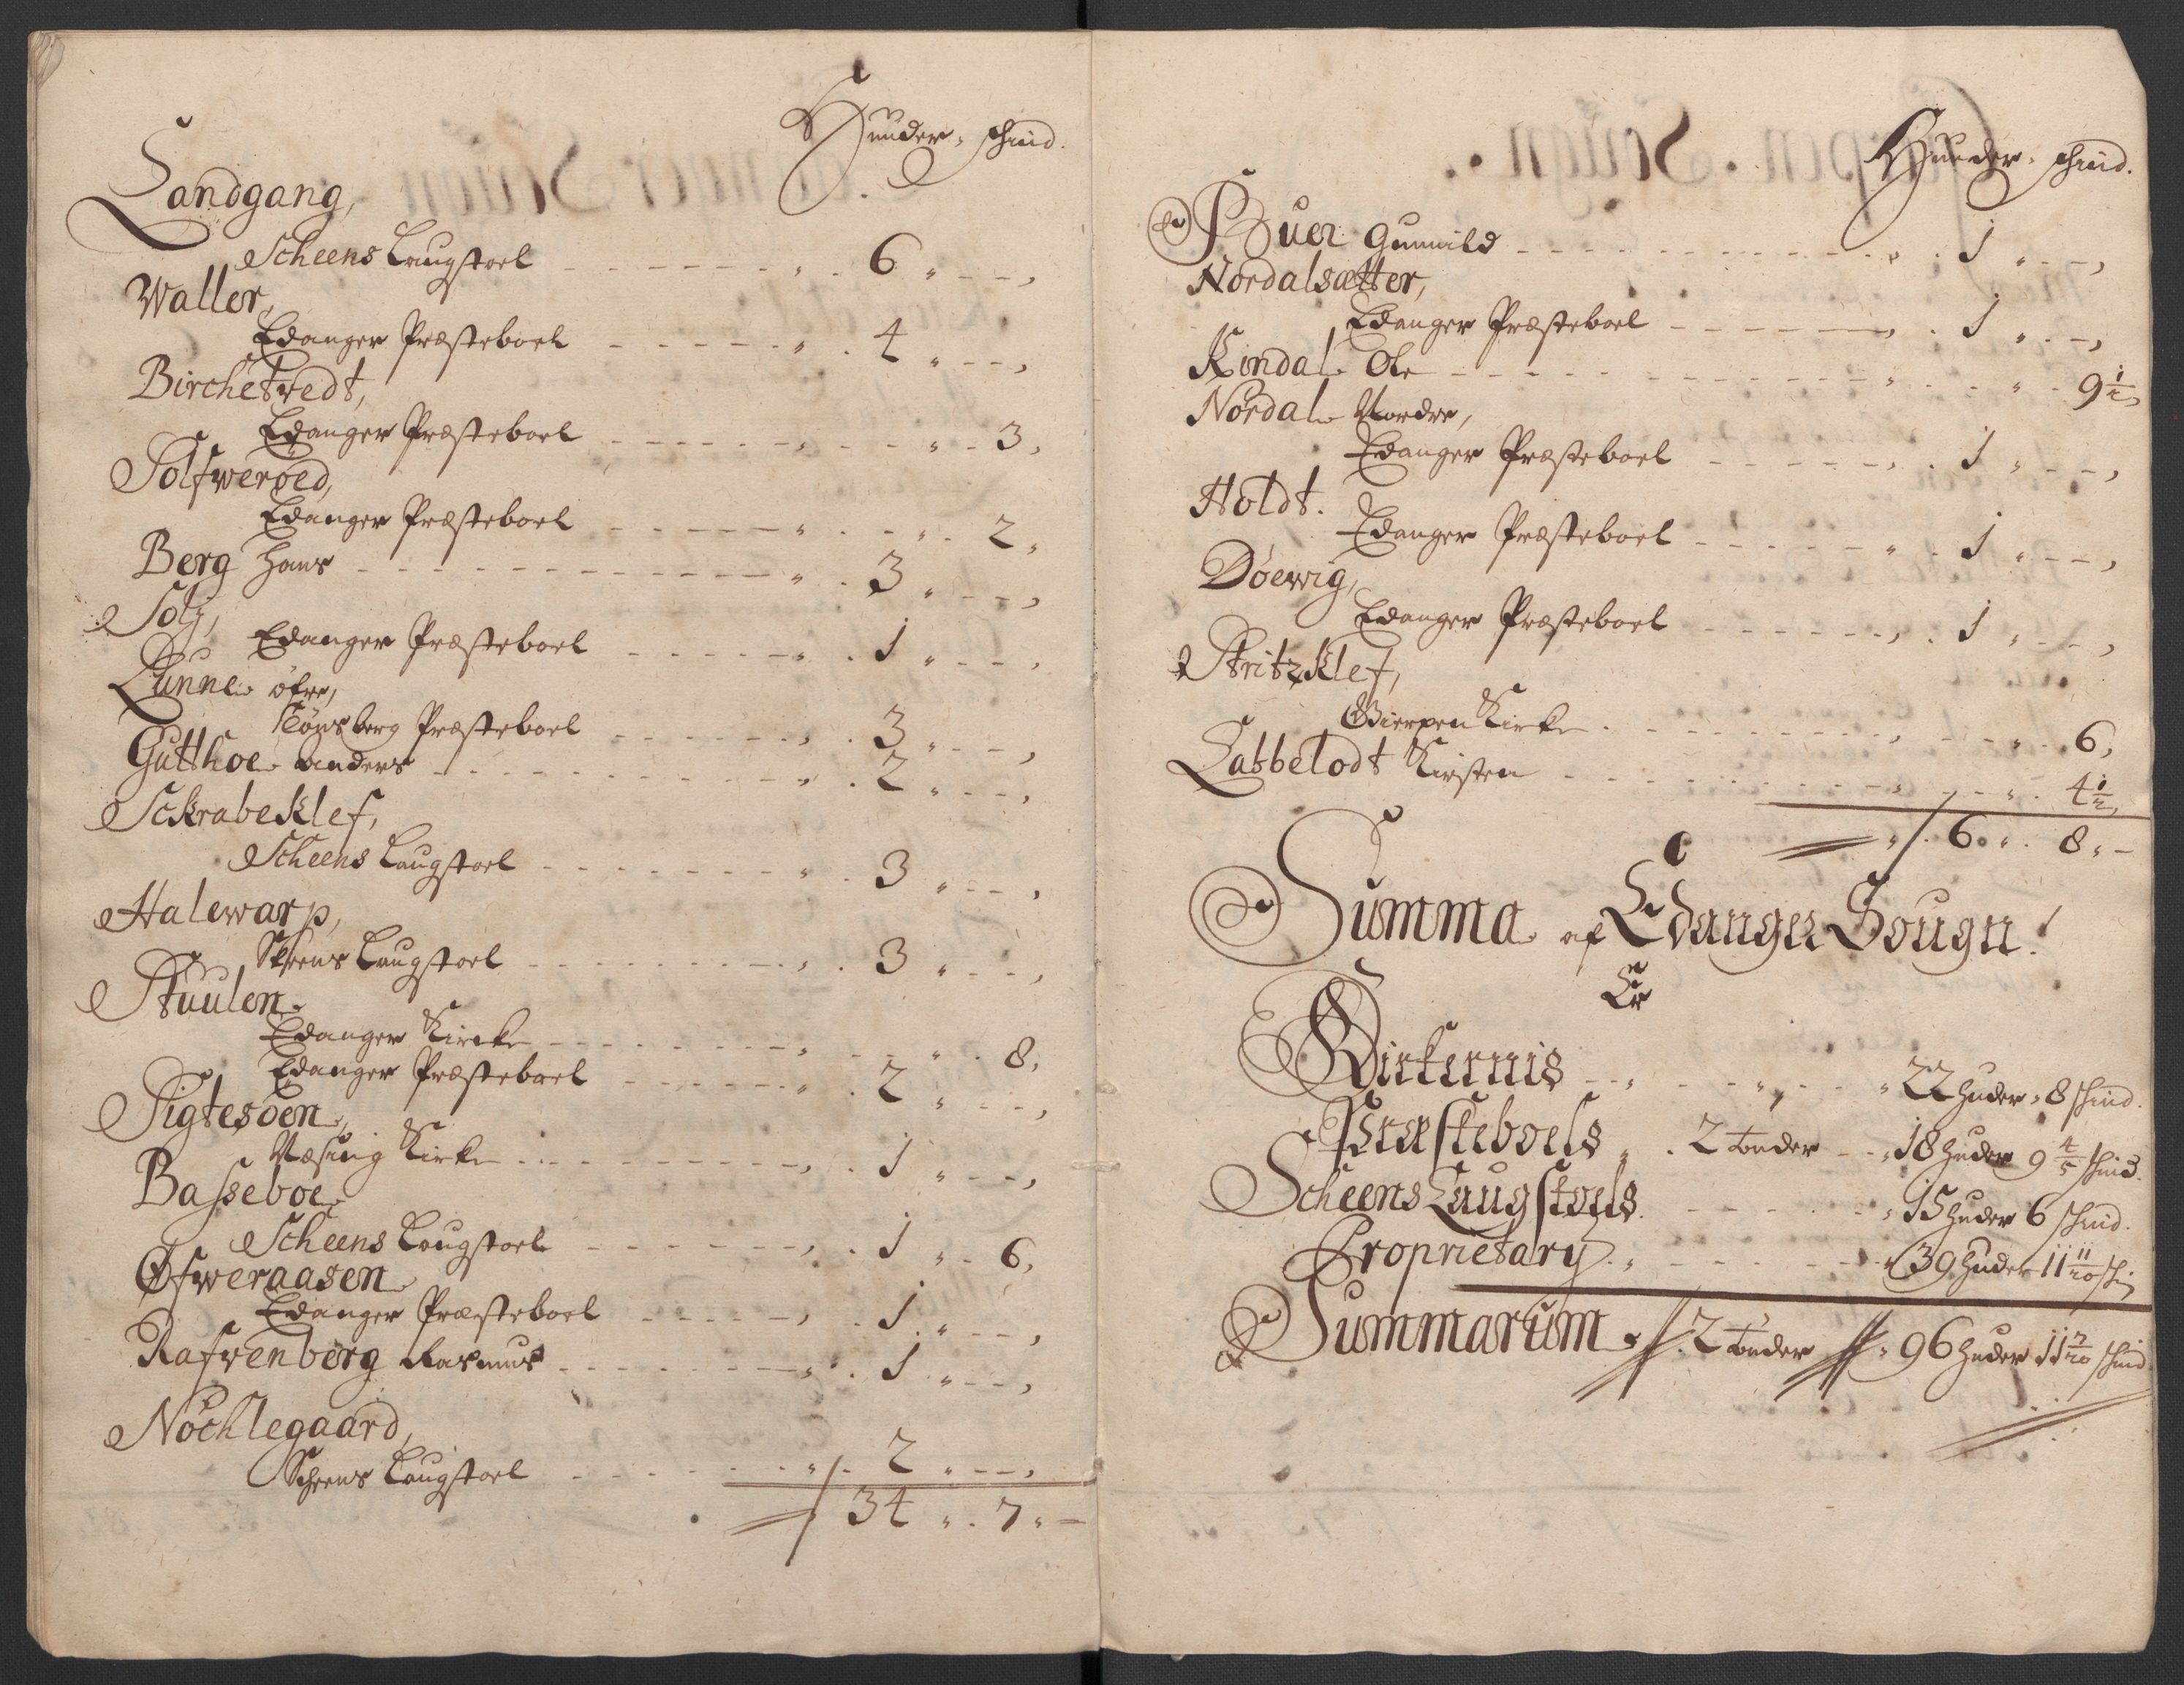 Huuder, schind.
Landgang,
Scheens Laugstoel - - - 6 „ - - ,
Waller,
Edanger Præsteboel - - - 4 „ - - ,
Birchetvedt,
Edanger Præsteboel - - - „ - 3,
Solfweröed,
Edanger Præsteboel - - - „ - 2,
Berg Hans - - - 3 „ - - ,
Solj,
Edanger Præsteboel - - - 1 „ - - ,
Lunne öfre,
Tönsberg Præsteboel - - - 3 „ - - ,
Gutthoe Anders - - - 2 „ - - ,
Sckrabeklef,
Scheens Laugstoel - - - 3 „ - - ,
Halewarp,
Scheens Laugstoel - - - 3 „ - - ,
Stuulen
Edanger Kircke - - - „ - 8,
Edanger Præsteboel - - - 2 „ - - ,
Sigtesöen,
Næsing Kirke - - - 1 „ - - ,
Basseboe
Scheens Laugstoel - - - 1 „ - 6,
Öfweraasen
Edanger Præsteboel - - - 1 „ - - ,
Rafwenborg Rasmus - - - 1 „ - - ,
Nöchlegaard,
Scheens Laugstoel - - - 2 „ - - ,
34 „ 7 „ -
Huuder, schind.
Buer Gunnild - - - 1 „ - - ,
Nordalsætter,
Edanger Præsteboel - - - 1 „ - - ,
Kindal Ole - - - „ - 9 1/2,
Nordal Nordre,
Edanger Præsteboel - - - 1 „ - - ,
Holdt.
Edanger Præsteboel - - - 1 „ - - ,
Döewig,
Edanger Præsteboel - - - 1 „ - - ,
Stritzklef,
Gierpen Kirke - - - „ - 6,
Labbelodt Kirsten - - - „ - 4 1/2,
6 „ 8 „ -
Summa af Edanger Sougn!
Er
Kirkernis - - „ - - „ 22 huder „ 8 schind.
Præsteboels „ 2 tønder - - „ 18 huder 9 4/5 schind.
Scheens Laugstoels - - - „ 15 huder 6 schind.
Proprietary „ - - - „ 39 huder 11 11/20 schin
Summarum 2 tønder „ 96 huder 11 7/20 schind